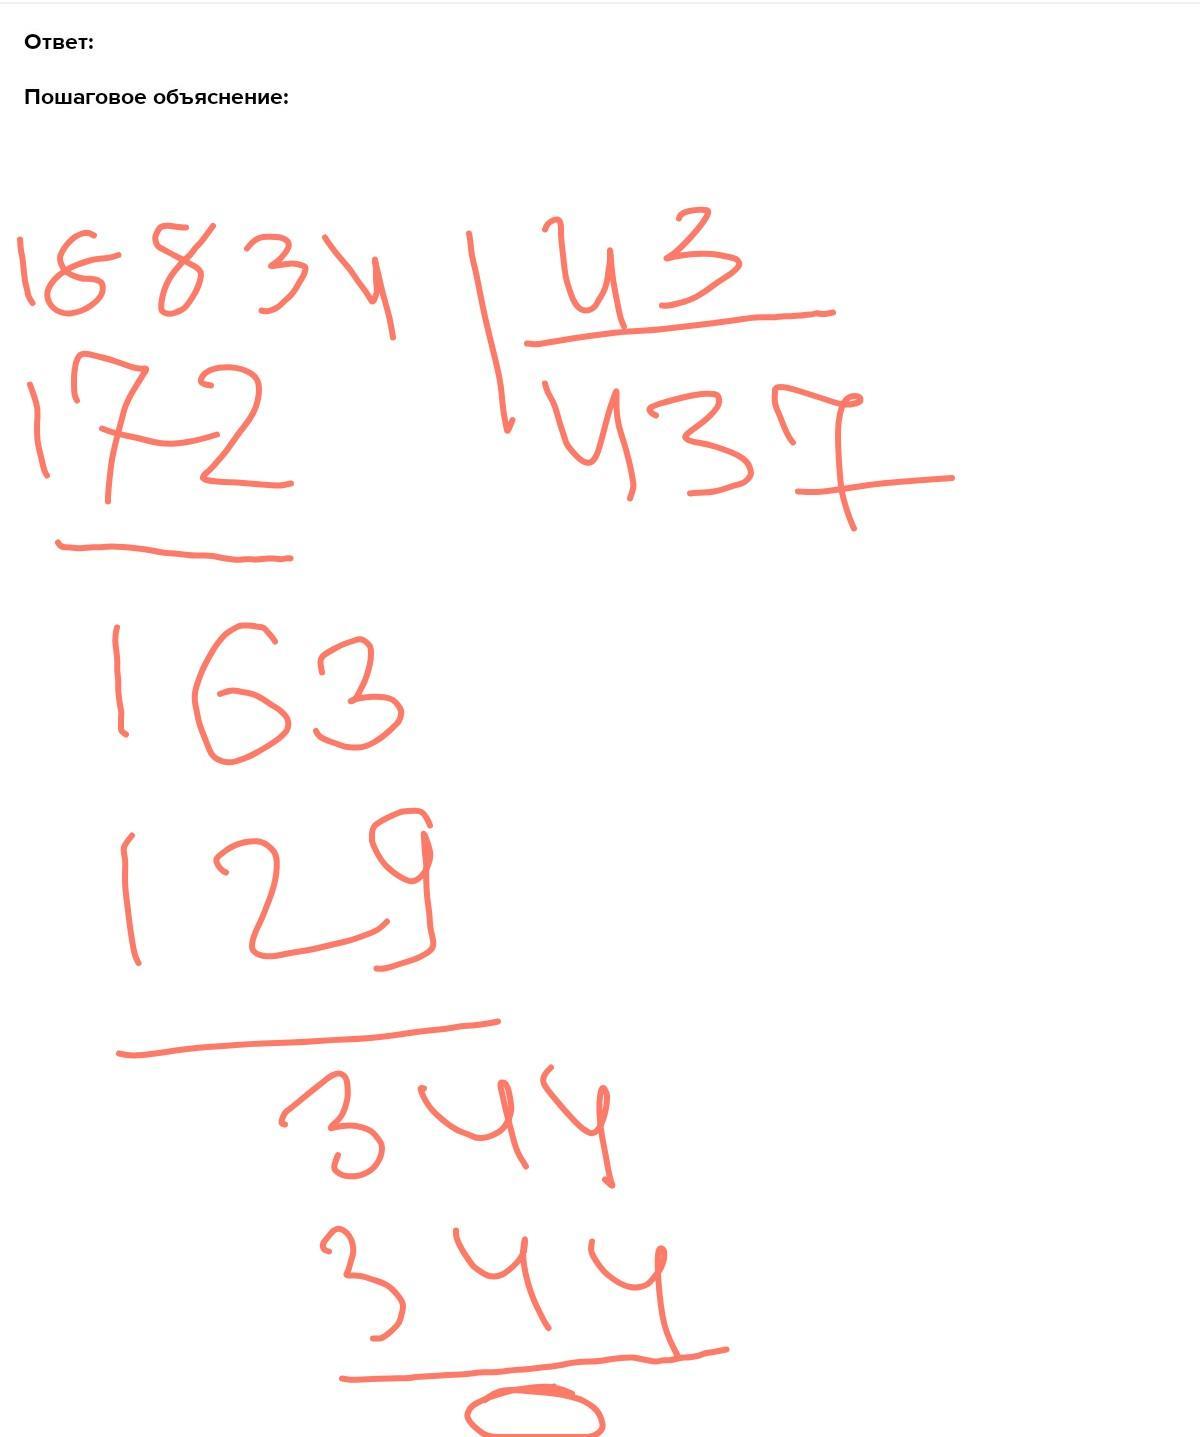 Ответ:
Пошаговое объяснение:
18834 43
172 437
163
129
344
344
0